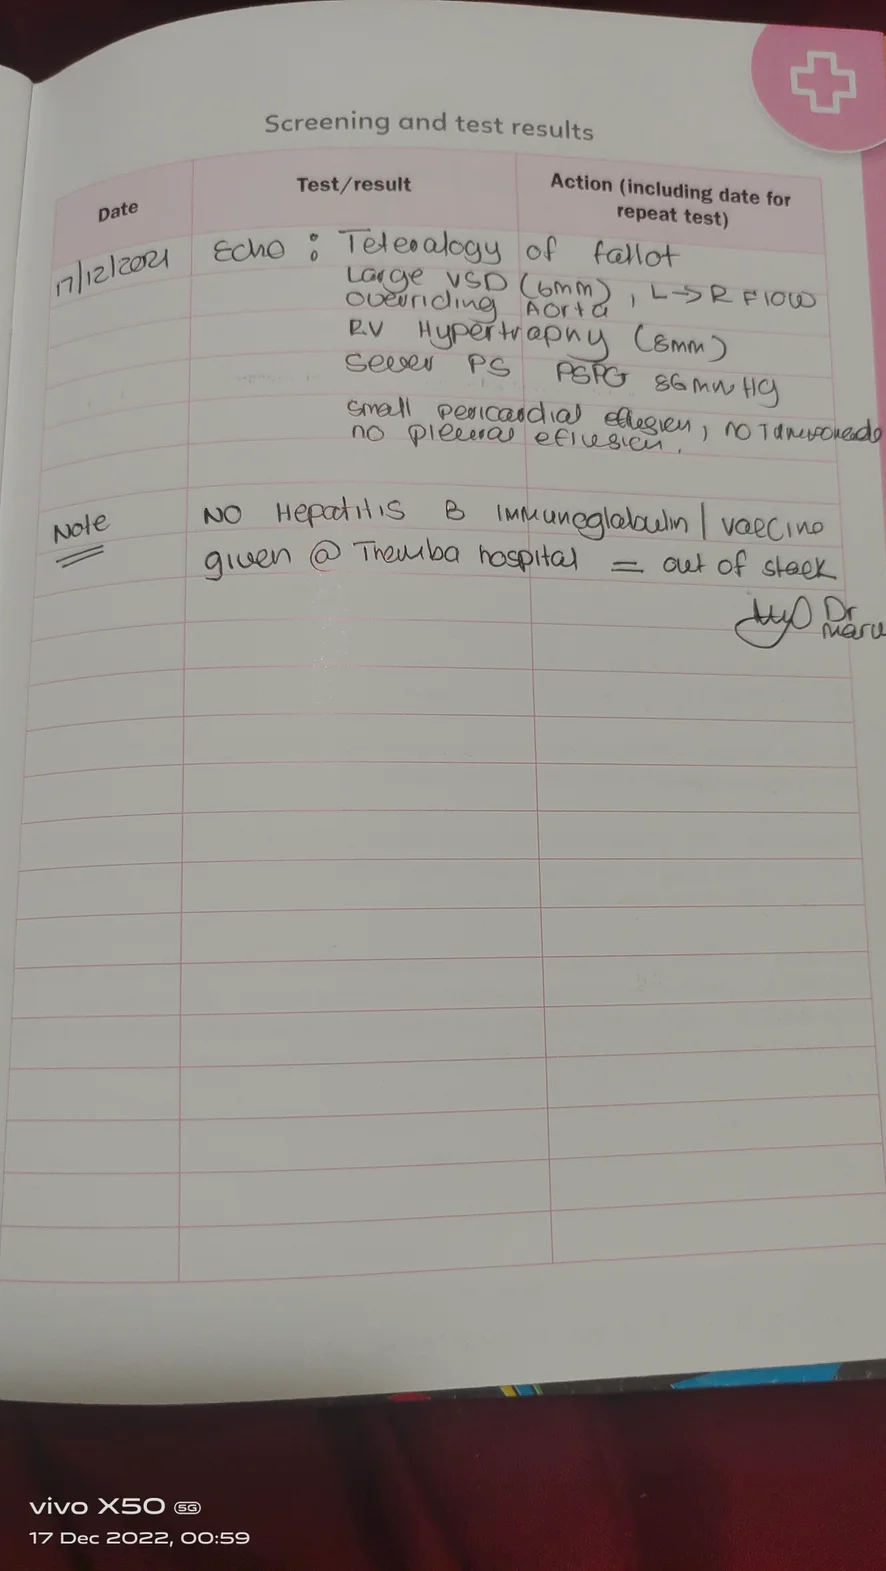 Screening and test results
Date Test/result Action (including date for repeat test)
17/12/2021 Echo : Teteralogy of fallot
Large VSD (6mm), L→R Flow
overriding Aorta
RV Hypertraphy (8mm)
Sever PS PSPG 86mmHg
Small pericardial effusion, no Tamponade
no pleural effusion.
Note No Hepatitis B Immunoglobulin / vaccine
given @ Themba hospital = out of stock
Dr
Maru
vivo X50 5G
17 Dec 2022, 00:59